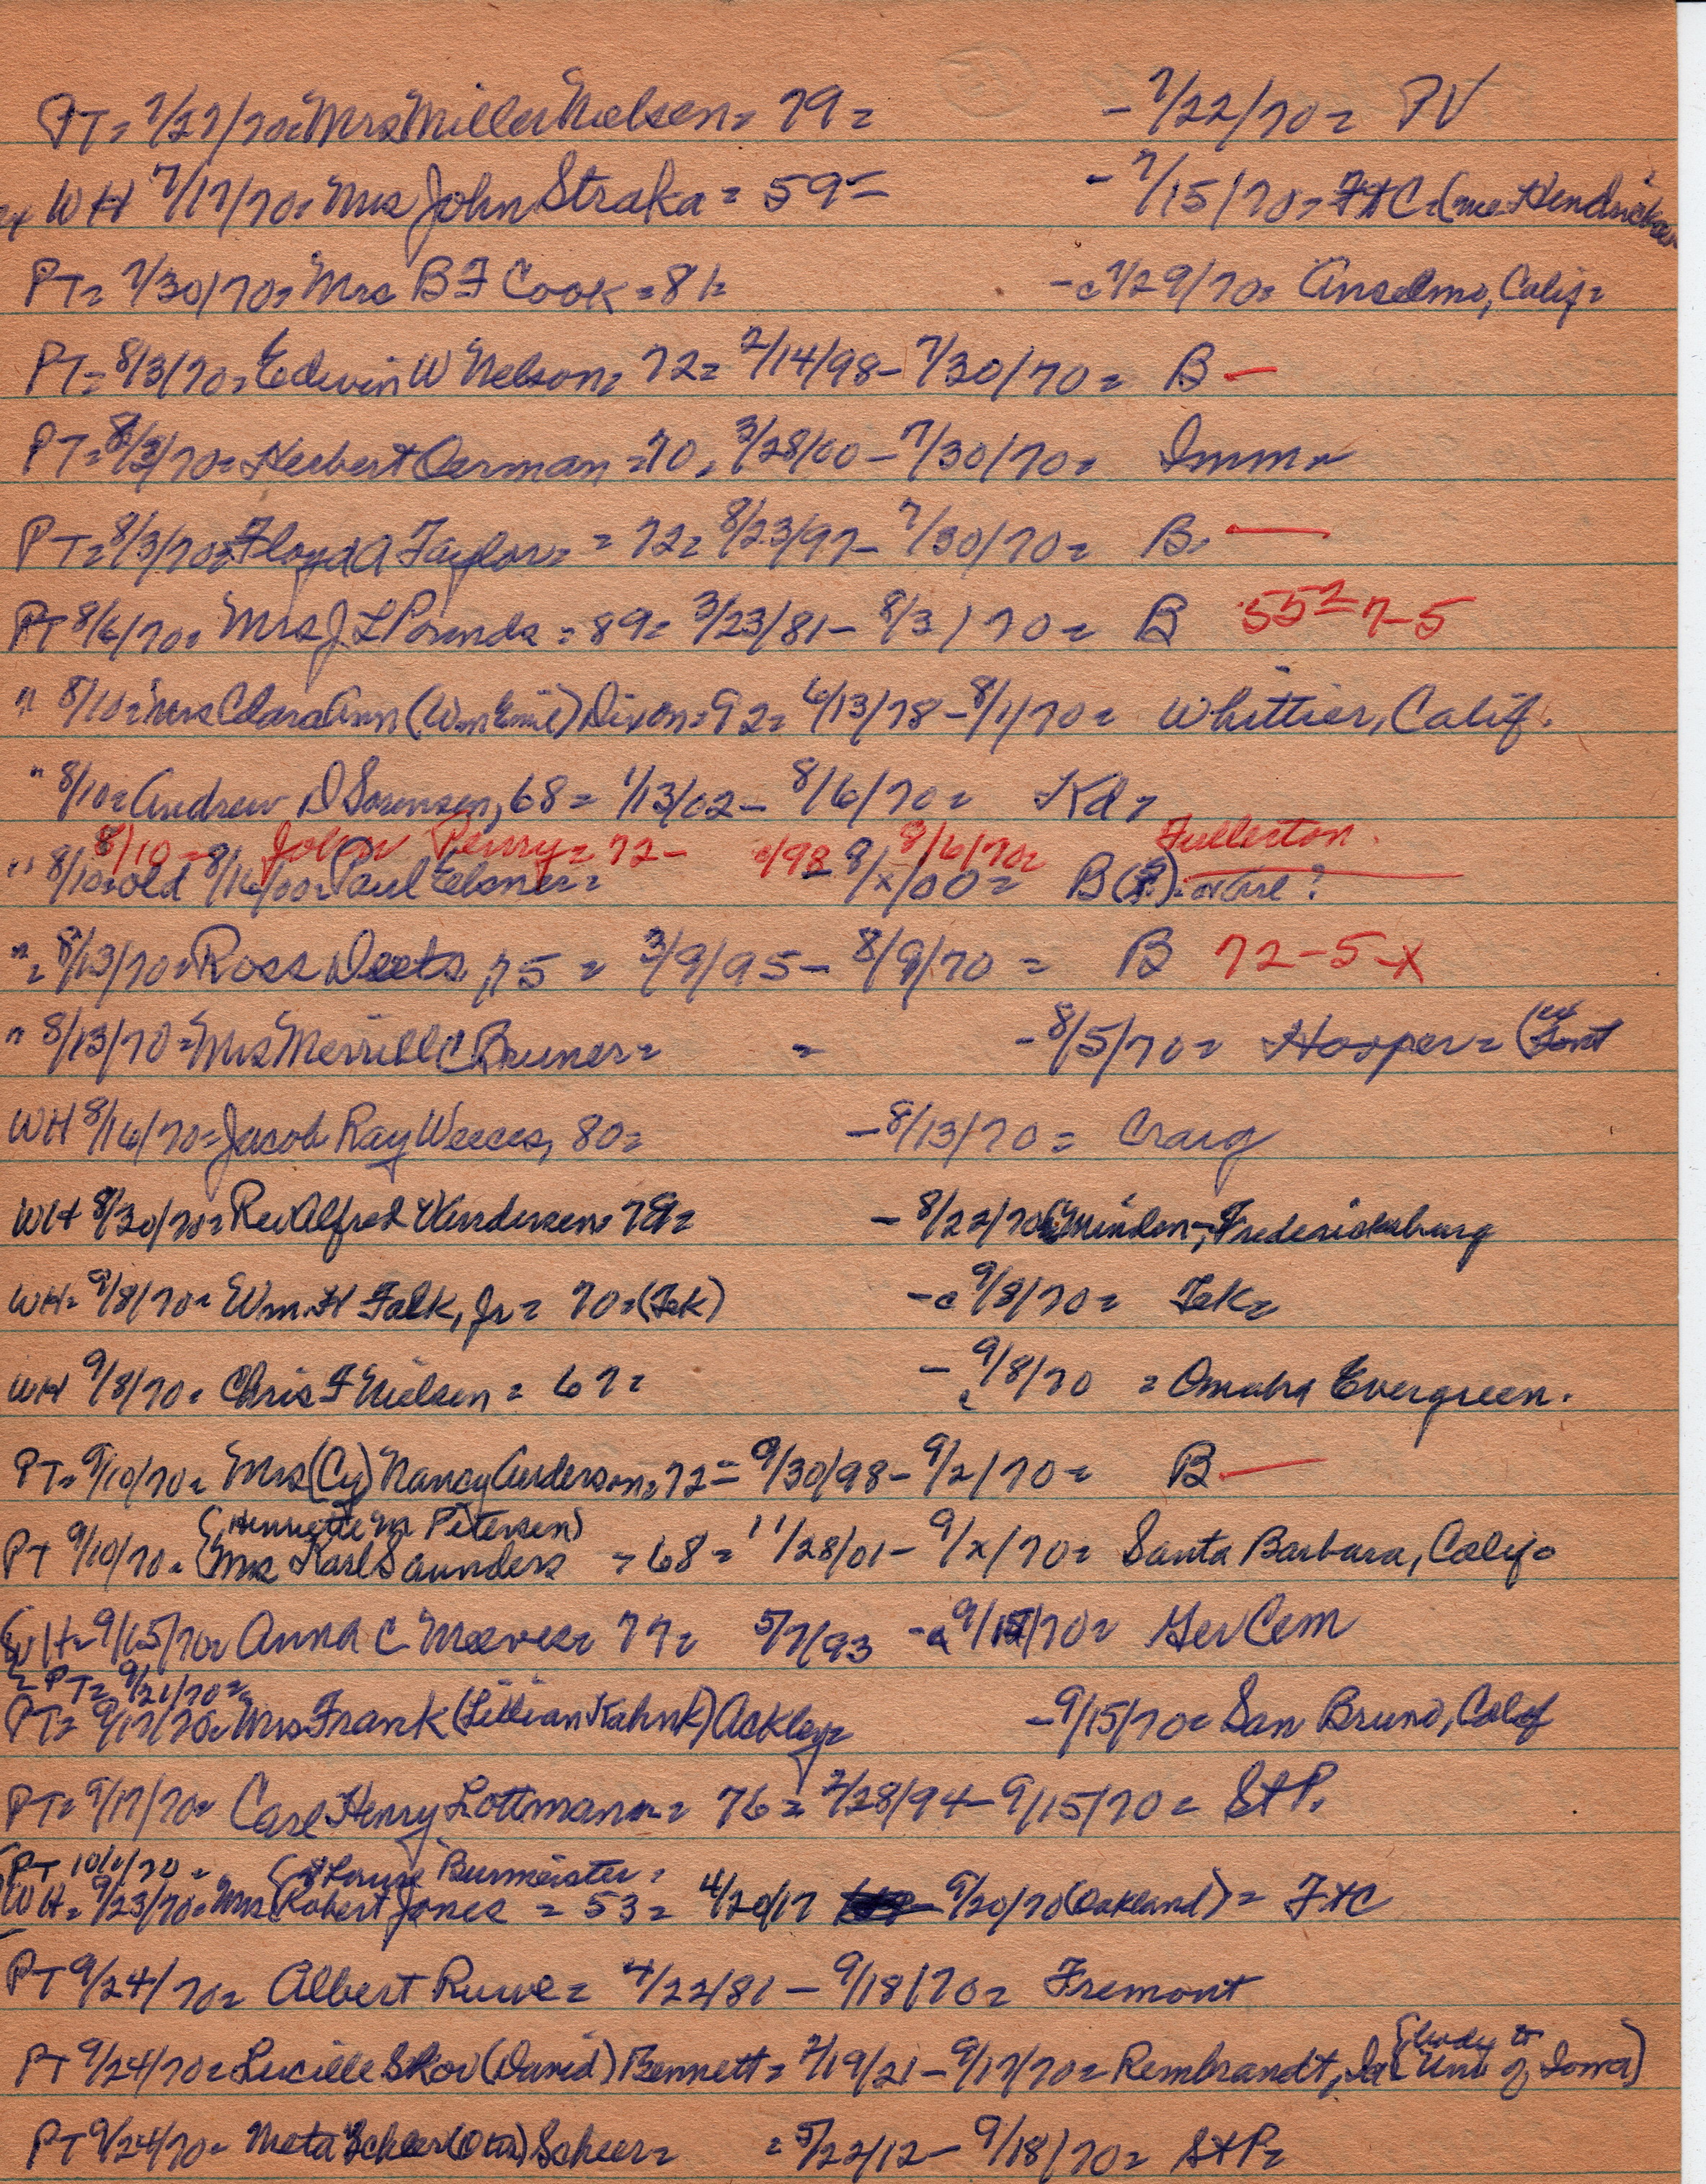 PT= 7/27/70= Mrs Miller Nielsen= 79= - 7/22/70= PV
WH 7/17/70= Mrs John Straka = 59= - 7/15/70= FHC= (nee Hendrickson
PT= 7/30/70= Mrs B F Cook =81= -c 7/29/70= Anselmo, Calif=
PT= 8/3/70= Edwin W Nelson= 72= 2/14/98- 7/30/70= B —
PT= 8/3/70= Herbert Oerman =70= 3/28/00- 7/30/70= Imm=
PT= 8/3/70= Floyd A Taylor= = 72= 8/23/97- 7/30/70= B= —
PT 8/6/70= Mrs J L Pounds = 89= 3/23/81- 8/3/70= B 55=7-5
" 8/10= Mrs Clara Ann (Wm Emil) Dixon=92= 6/13/78-8/1/70= Whittier, Calif.
" 8/10= Andrew D Sorensen, 68= 1/13/02- 8/6/70= Kd=
8/10= John Perry= 72- /98 8/6/70= Fullerton.
" 8/10= old 8/16/00= Paul Elsner= 8/x/00= B(?)= or Arl ?
"= 8/13/70= Ross Deets, 75 = 3/9/95- 8/9/70 = B 72-5-x
" 8/13/70= Mrs Merrill C Bruner= = -8/5/70= Hooper= (ex Font
WH 8/16/70= Jacob Ray Weeces, 80= -8/13/70= Craig
WH 8/30/70= Rev Alfred Andersen= 78= - 8/22/70 Minden-, Fredericksburg
WH= 9/8/70= Wm. H Falk, Jr= 70=(Tek) -c 9/8/70= Tek=
WH 9/8/70= Chris F Nielsen = 67= -c 9/8/70 = Omaha Evergreen.
PT= 9/10/70= Mrs (Cy) Nancy Anderson=72= 9/30/98- 9/2/70= B —
(Henriette M Petersen)
PT 9/10/70= (Mrs Karl Saunders =68= 11/28/01- 9/x/70= Santa Barbara, Calif=
WH= 9/15/70= Anna C Meeves= 77= 5/7/93 -c 9/15/70= Ger Cem
PT= 9/21/70=
PT= 9/17/70= Mrs Frank (Lillian Kahnk) Ackley= -9/15/70= San Bruno, Calif
PT= 9/17/70= Carl Henry Lottmann= 76= 2/28/94-9/15/70= St P.
PT 10/1/70= Louise Burmeister=
WH= 9/23/70= Mrs (Robert Jones = 53= 4/20/17 9/20/70(Oakland)= FHC
PT 9/24/70= Albert Ruwe= 4/22/81- 9/18/70= Fremont
PT 9/24/70= Lucille Skov (David) Bennett= 2/19/21- 9/17/70= Rembrandt, Ia (body to Uni of Iowa)
PT 9/24/70= Meta Scheer (Otto) Scheer= = 5/22/12- 9/18/70= St P=